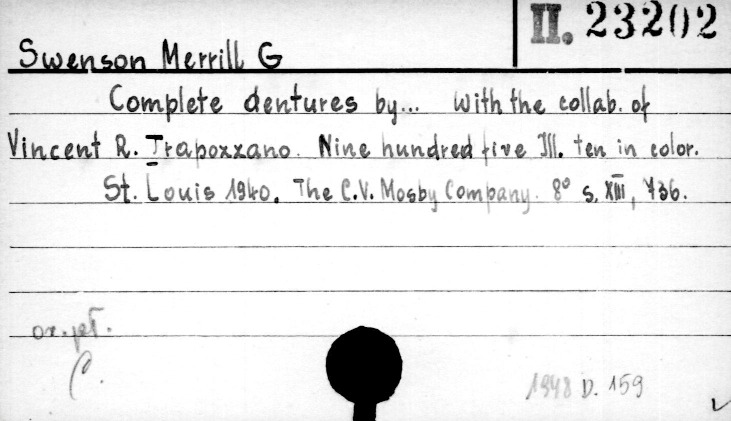 II. 23202
Swenson Merrill G
Complete dentures by... With the collab. of
Vincent R. Trapozzano. Nine hundred five Ill. ten in color.
St. Louis 1940. The C.V. Mosby Company. 8° s. XIII, 736.
C.
1948 D. 159